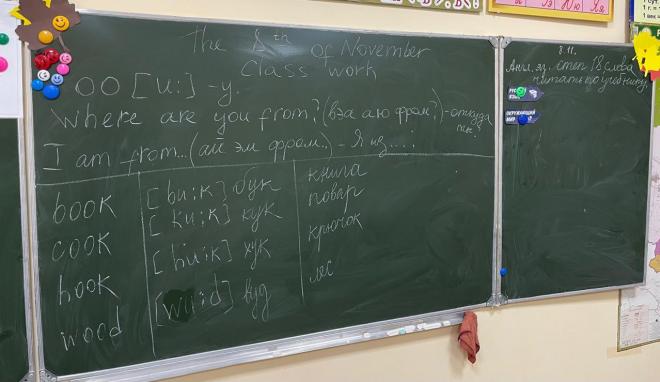 The 8th of November
Class work
OO [u:] -у.
Where are you from? (вэа а ю фром?) - откуда
I am from... (ай эм фром..) - Я из.....
book [bu:k] бук книга
cook [ku:k] кук повар
hook [hu:k] хук крючок
wood [wu:d] вуд лес
8.11.
Англ. яз. степ 18 слова
читать по учебнику.
РУС
ОКРУЖАЮЩИЙ
МИР